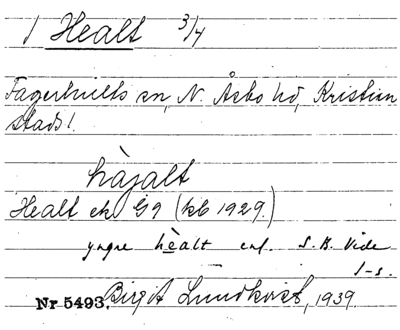 1 Healt 3/4
Fagerhults sn, N. Åsbo hd, Kristian
stads l.
hàjalt
Healt ek G9 (kb 1929.)
yngre hèalt enl. S.B. Vide
l-s.
Nr 5493. Birgit Lundkvist, 1939.